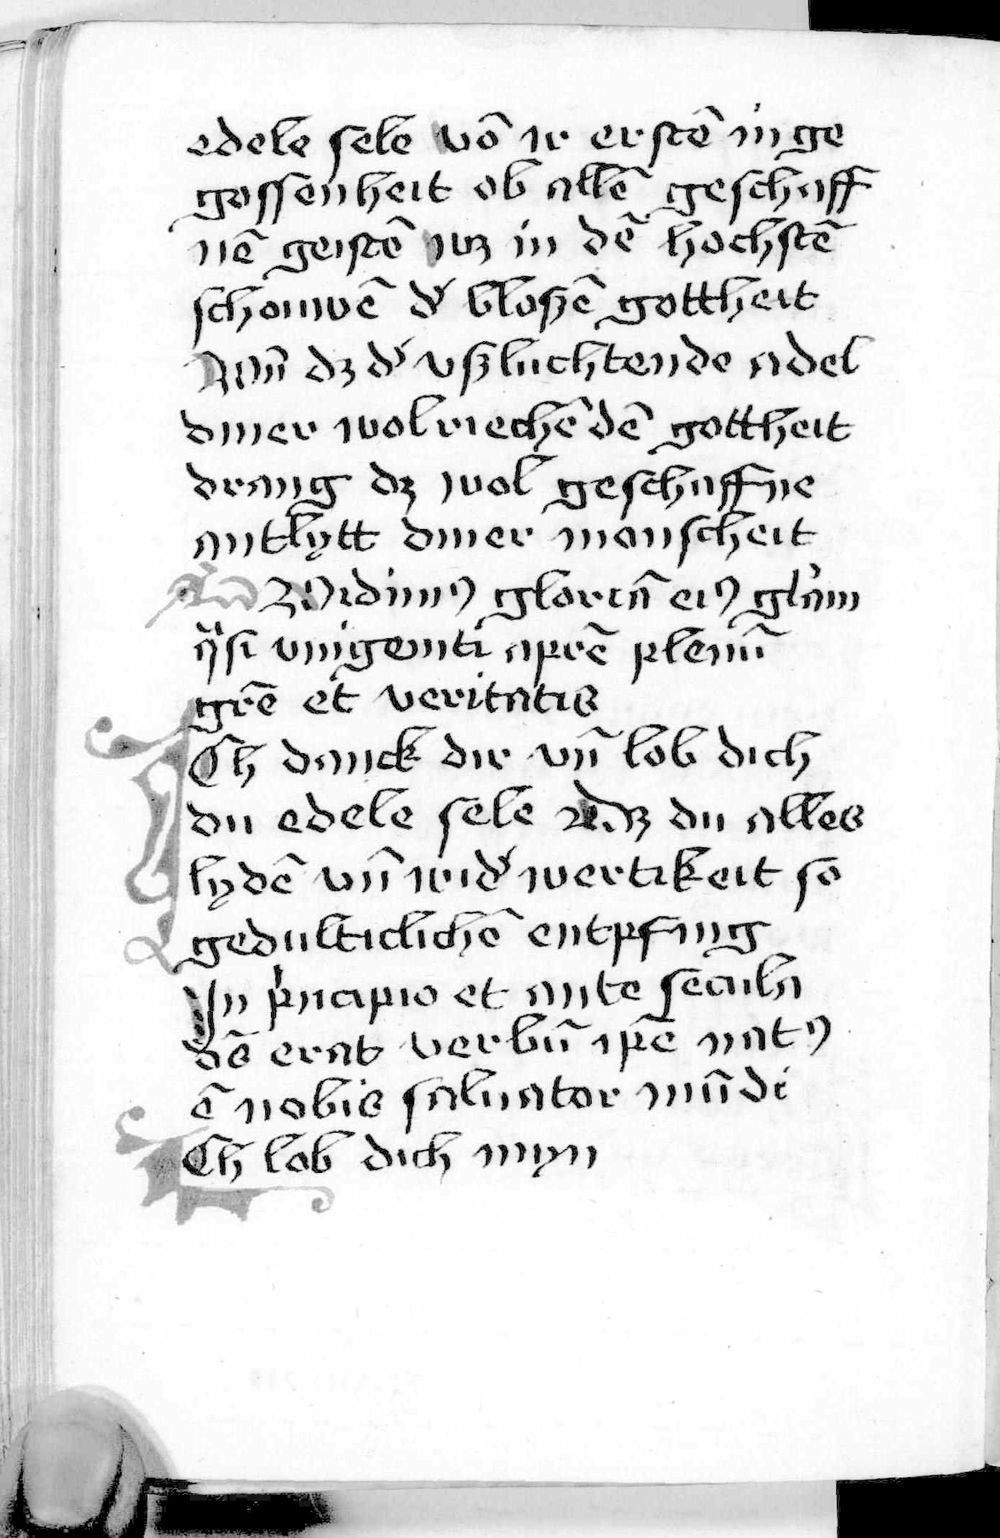 edele sele vō ir erstē in ge
gossenheit ob allē geschaff
nē geistē wz in dē hochstē
schouwē d' bloszē gottheit
Wān dz d' vszluchtende adel
diner wolriechēdē gottheit
drang dz wol geschaffne
antlytt diner monscheit
Vidimꝰ gloriā eiꝰ gl'am
q'si vnigeniti aprē plenū
grē et veritatis
Ich danck dir vn̄ lob dich
du edele sele dz du alles
lydē vn̄ wid'wertikeit so
gedulticlichē entpfing
In p'ncipio et ante secula
de᷒ erat verbū ip̄e natꝰ
ē nobis saluator mūdi
Ich lob dich myn